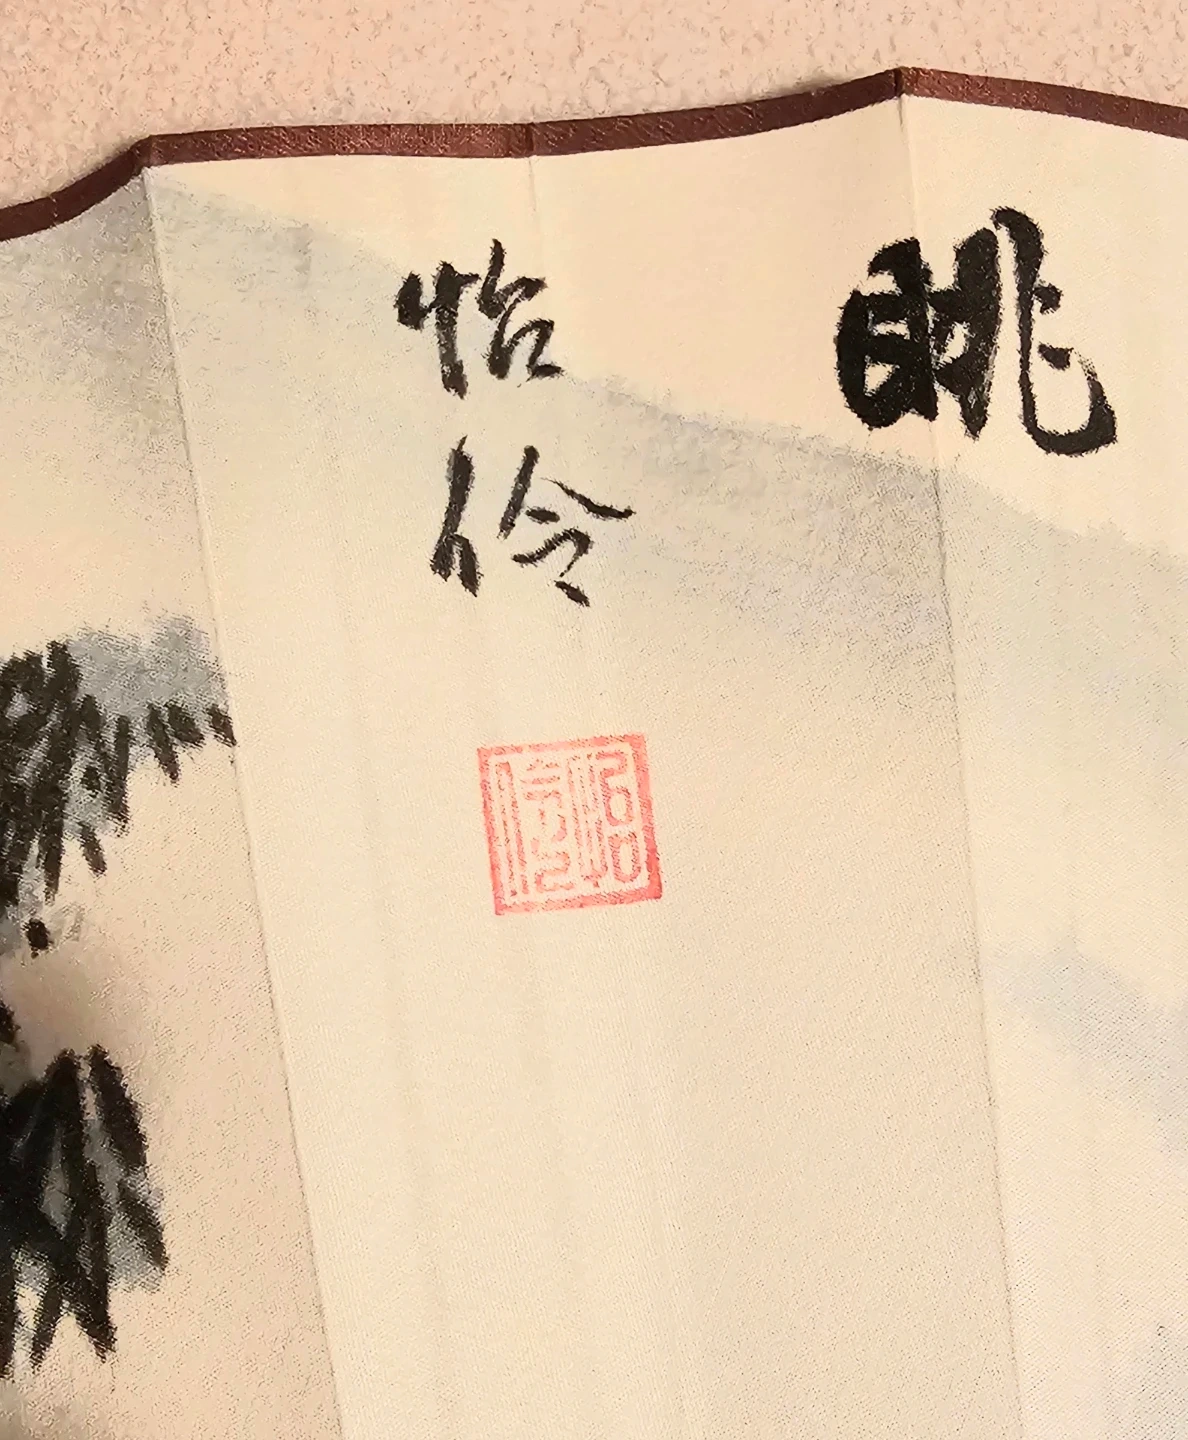 眺
怡伶
怡伶